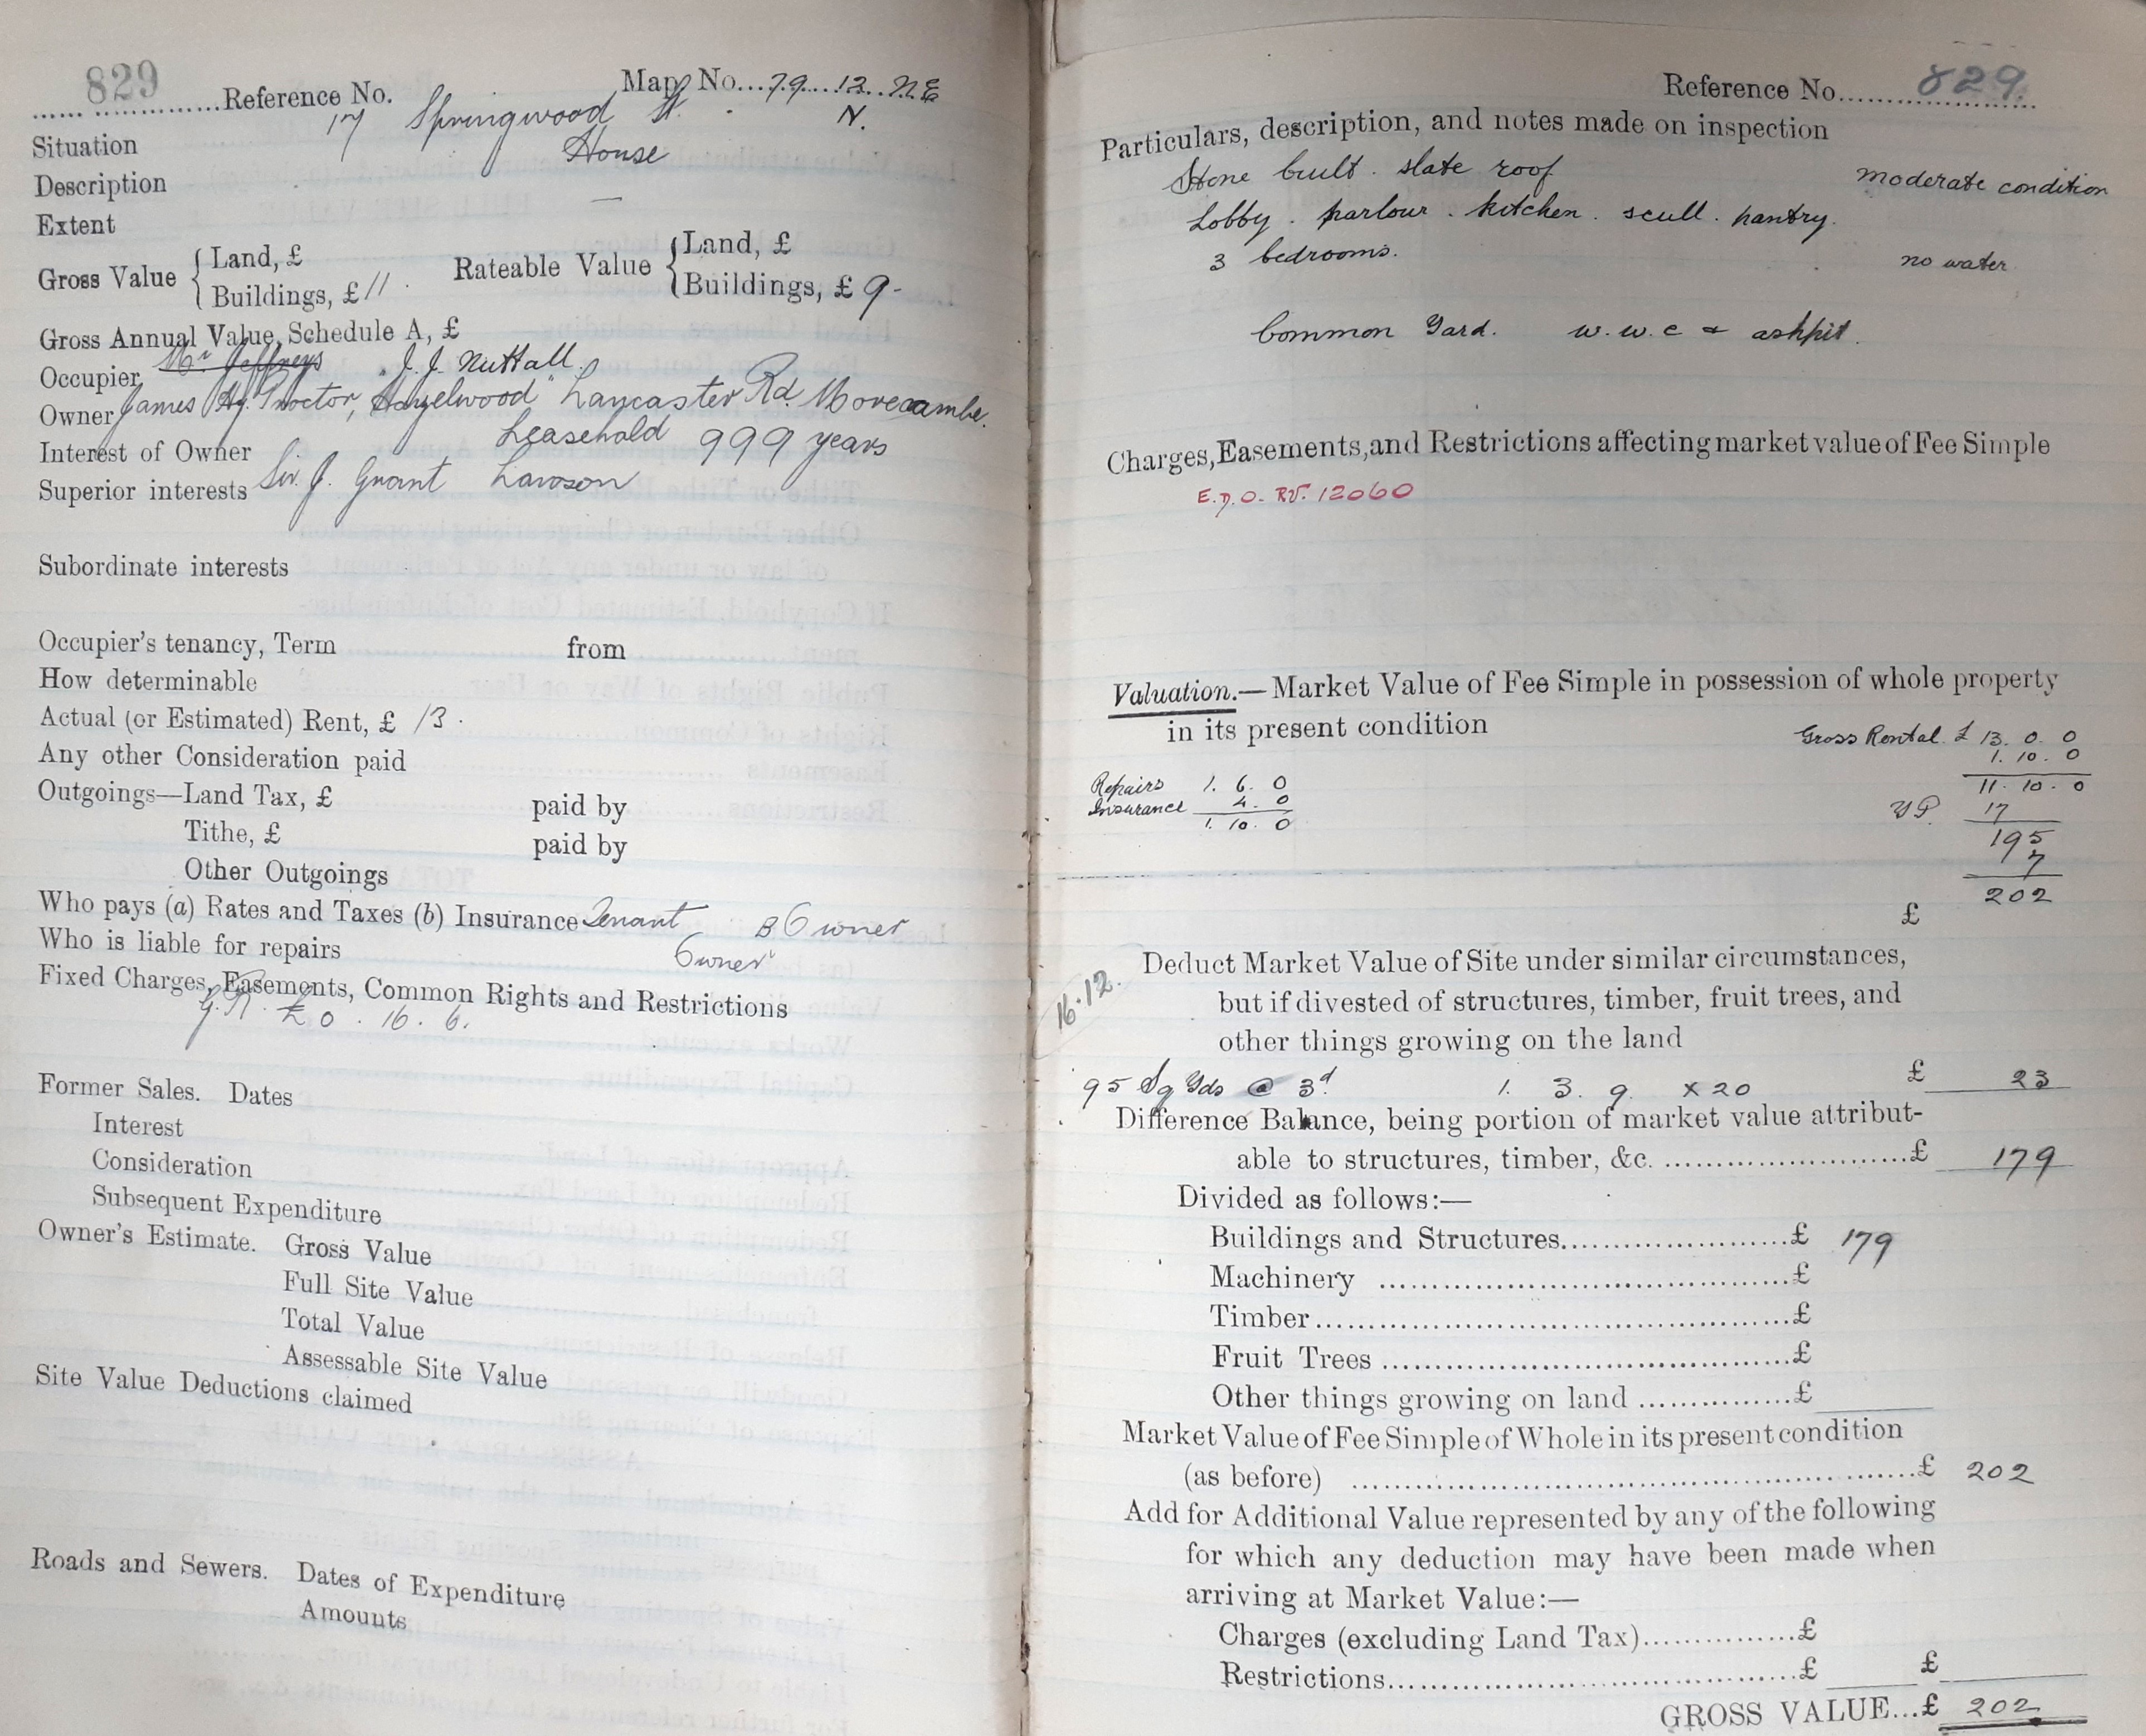 829 Reference No. Map No. 79. 12. N.E
17 Springwood St. N.
Situation
House
Description
Extent —
Gross Value { Land, £ Rateable Value { Land, £
Buildings, £ 11 . Buildings, £ 9-
Gross Annual Value, Schedule A, £
Occupier Mr Jeffreys J. J. Nuttall.
Owner James Hy. Proctor, "Hazelwood" Lancaster Rd. Morecambe.
Interest of Owner Leasehold 999 years
Superior interests Sir. J. Grant Lawson
Subordinate interests
Occupier's tenancy, Term from
How determinable
Actual (or Estimated) Rent, £ 13 .
Any other Consideration paid
Outgoings—Land Tax, £ paid by
Tithe, £ paid by
Other Outgoings
Who pays (a) Rates and Taxes (b) Insurance Tenant B Owner
Who is liable for repairs Owner
Fixed Charges, Easements, Common Rights and Restrictions
G.R. £0 . 16 . 6.
Former Sales. Dates
Interest
Consideration
Subsequent Expenditure
Owner's Estimate. Gross Value
Full Site Value
Total Value
Assessable Site Value
Site Value Deductions claimed
Roads and Sewers. Dates of Expenditure
Amounts
Reference No. 829.
Particulars, description, and notes made on inspection
Stone built . slate roof moderate condition
Lobby . parlour . kitchen . scull . pantry.
3 bedrooms. no water.
Common Yard. w.w.c & ashpit.
Charges, Easements, and Restrictions affecting market value of Fee Simple
E.D.O. RV. 12060
Valuation.—Market Value of Fee Simple in possession of whole property
in its present condition
Gross Rental £ 13. 0. 0
1. 10. 0
Repairs 1. 6. 0 11. 10. 0
Insurance 4. 0 YP. 17
1. 10. 0 195
7
202
£
Deduct Market Value of Site under similar circumstances,
16.12. but if divested of structures, timber, fruit trees, and
other things growing on the land
95 Sq Yds @ 3d 1. 3. 9. x 20 £ 23
Difference Balance, being portion of market value attribut-
able to structures, timber, &c. £ 179
Divided as follows:—
Buildings and Structures £ 179
Machinery £
Timber £
Fruit Trees £
Other things growing on land £
Market Value of Fee Simple of Whole in its present condition
(as before) £ 202
Add for Additional Value represented by any of the following
for which any deduction may have been made when
arriving at Market Value:—
Charges (excluding Land Tax) £
Restrictions £ £
GROSS VALUE...£ 202